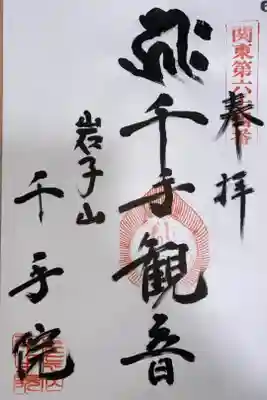 奉拝
関東第六十番
千手観音
岩子山
千手院